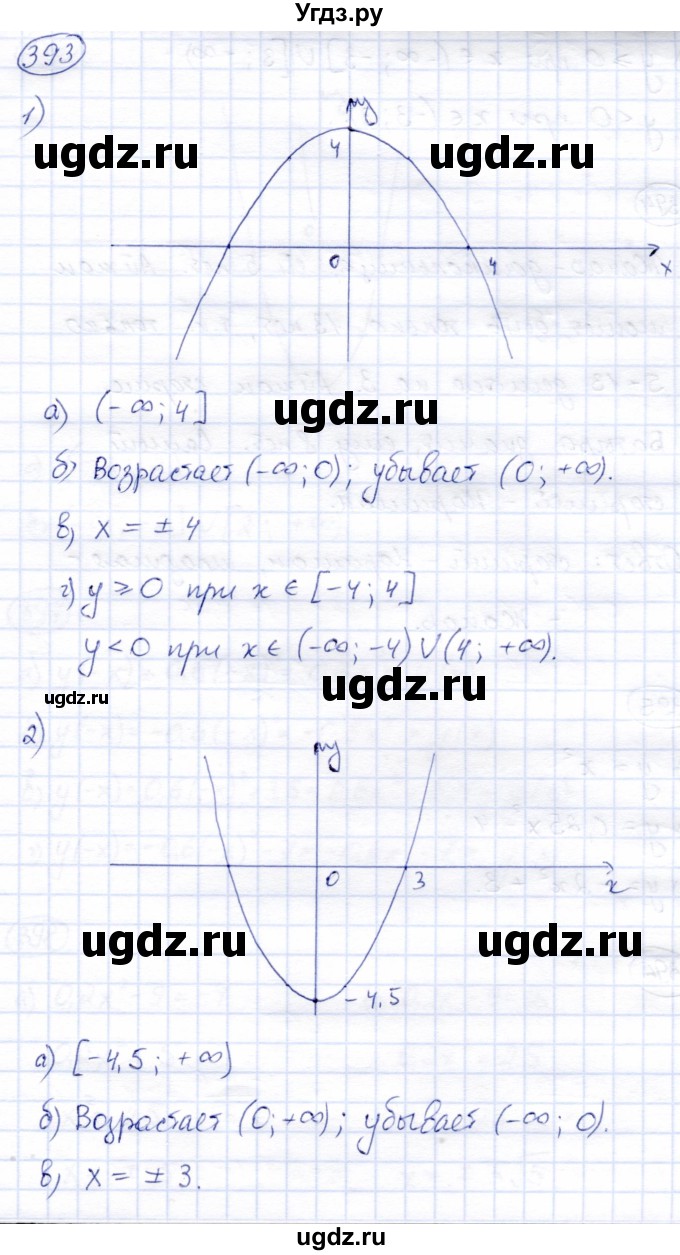 Угдз.ру
393
1)
y
ugdz.ru
ugdz.ru
4
0
4
x
а) (-∞; 4]
ugdz.ru
б) Возрастает (-∞; 0); убывает (0; +∞).
в) x = ± 4
г) y ≥ 0 при x ∈ [-4; 4]
y < 0 при x ∈ (-∞; -4) ∪ (4; +∞).
ugdz.ru
ugdz.ru
2)
y
0
3
x
ugdz.ru
ugdz.ru
-4,5
а) [-4,5; +∞)
б) Возрастает (0; +∞); убывает (-∞; 0).
в) x = ± 3.
ugdz.ru